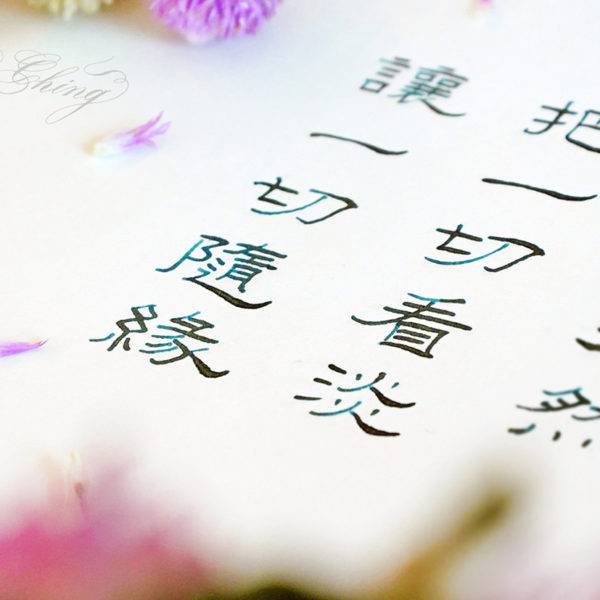 然
把一切看淡
讓一切隨緣
Ching